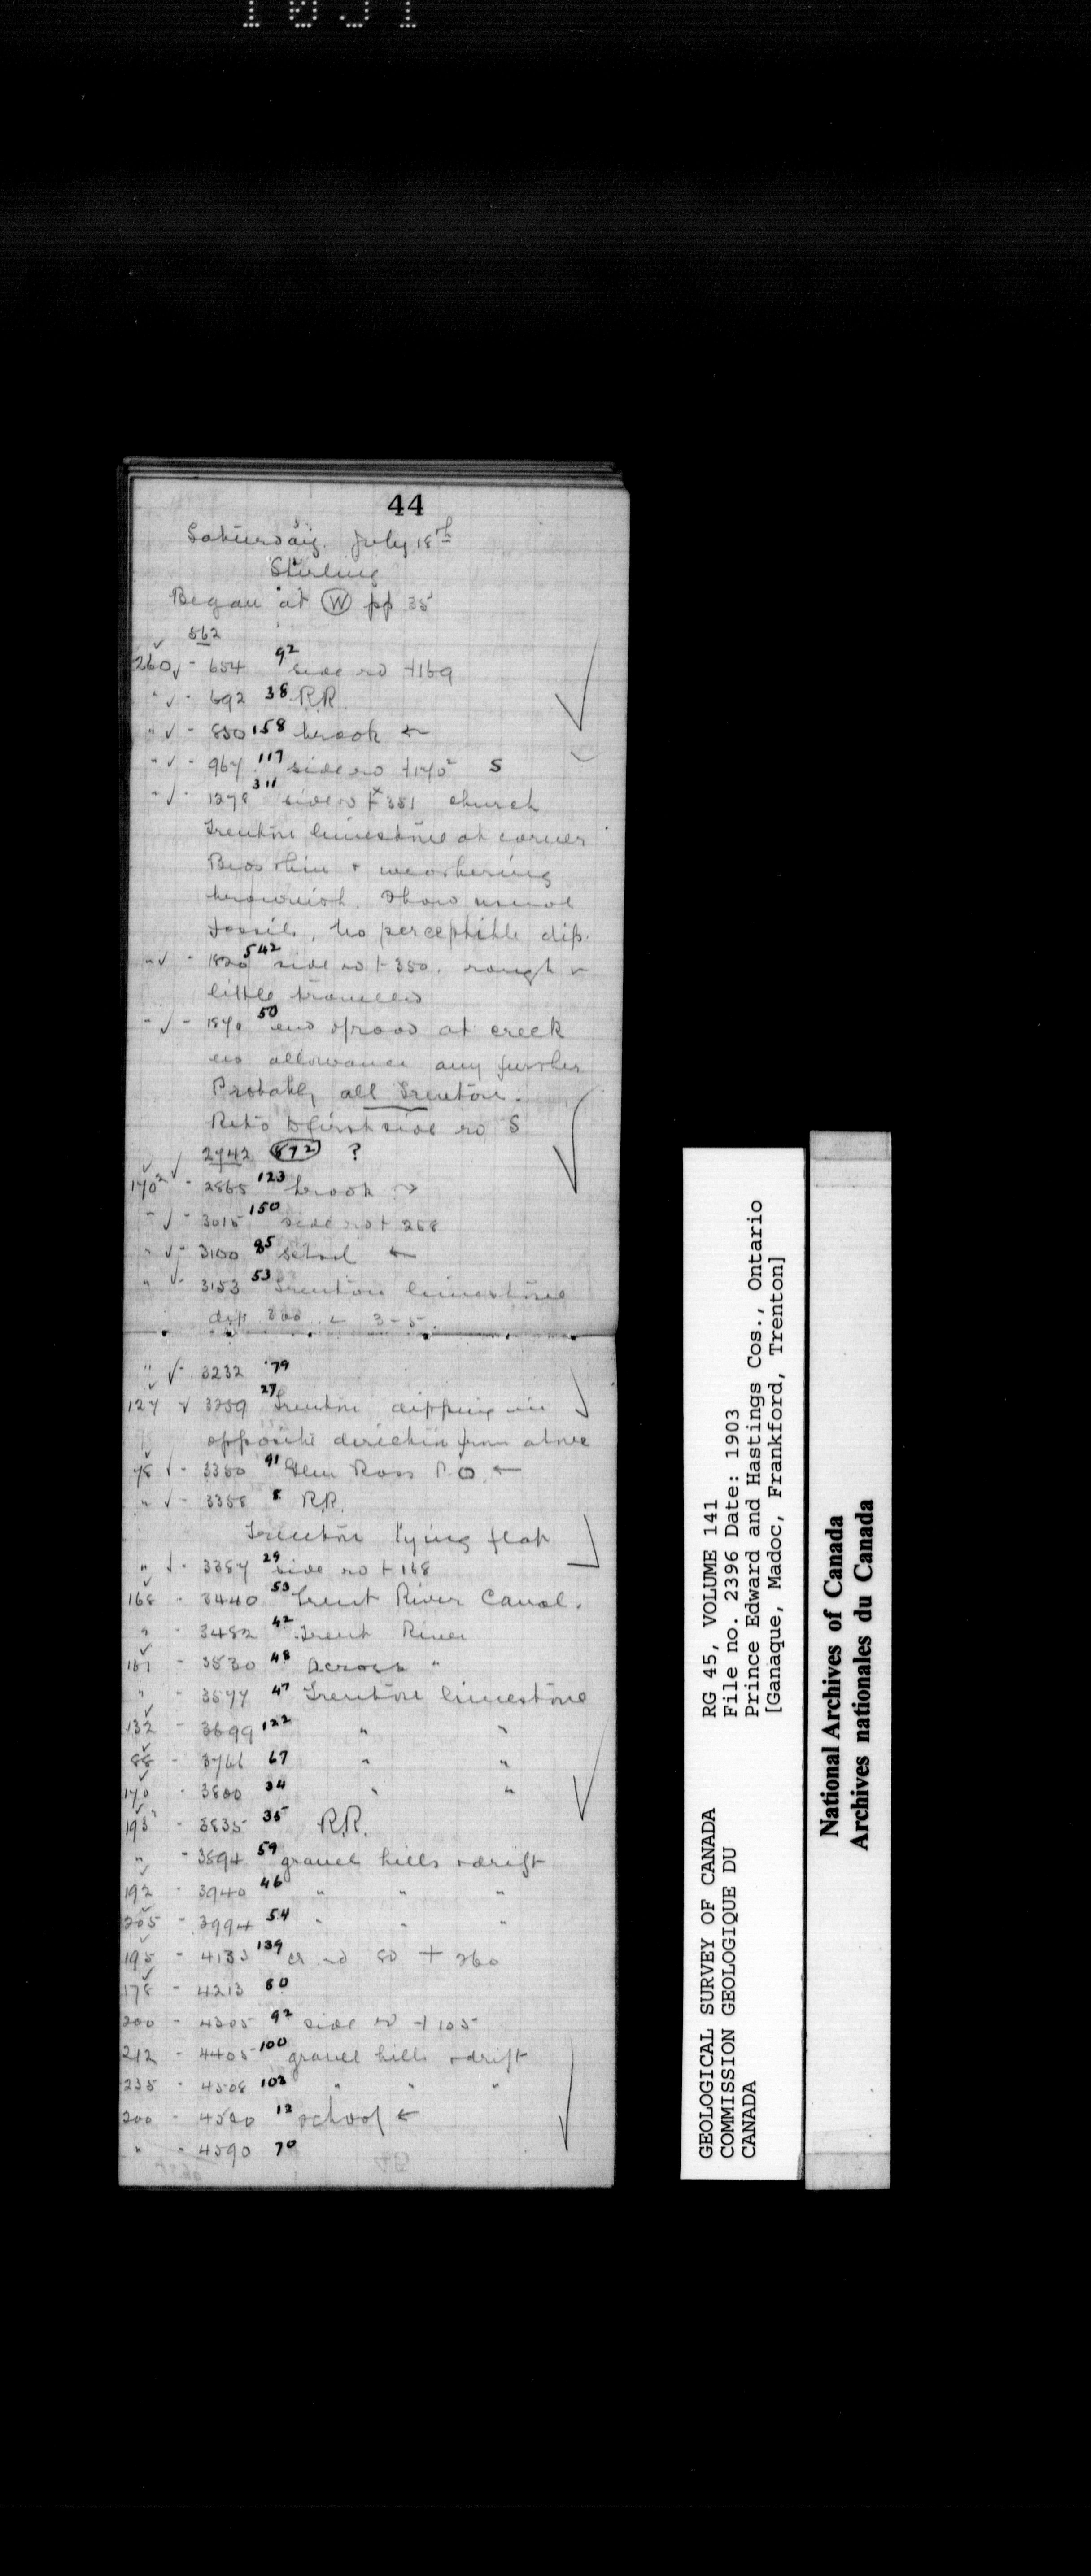 44
Saturday. July 18th
Stirling
Began at W pp 35
562
260 - 654 92 side rd +169
" - 692 38 R.R.
" - 850 158 brook ←
" - 967 117 side rd +170² S
" - 1278 311 side rd + 351 church
Trenton limestone at corner
Beds thin & weathering
brownish. Show usual
fossils, no perceptible dip.
" - 1820 542 side rd + 350. rough &
little travelled
" - 1870 50 end of road at creek
no allowance any further
Probably all Trenton.
Ret'd to first side rd S
2742 872 ?
170² - 2865 123 brook →
" - 3015 150 side rd + 268
" - 3100 85 school ←
" - 3153 53 Trenton limestone
dip 300 < 3-5.
" - 3232 79
127 - 3259 27 Trenton dipping in
opposite direction from above
78 - 3350 91 Glen Ross P.O. ←
" - 3358 8 R.R.
Trenton lying flat
" - 3387 29 side rd + 168
168 - 3440 53 Trent River Canal.
" - 3482 42 Trent River
151 - 3530 48 Across "
" - 3577 47 Trenton limestone
132 - 3699 122 " "
88 - 3766 67 " "
170 - 3800 34 " "
193 - 3835 35 R.R.
" - 3894 59 gravel hills & drift
192 - 3940 46 " " "
205 - 3994 54 " " "
195 - 4133 139 cr rd 80 + 260
178 - 4213 80
200 - 4305 92 side rd + 105
212 - 4405 100 gravel hills & drift
235 - 4508 103 " " "
200 - 4520 12 school ←
" - 4590 70
GEOLOGICAL SURVEY OF CANADA
COMMISSION GEOLOGIQUE DU
CANADA
RG 45, VOLUME 141
File no. 2396 Date: 1903
Prince Edward and Hastings Cos., Ontario
[Ganaque, Madoc, Frankford, Trenton]
National Archives of Canada
Archives nationales du Canada